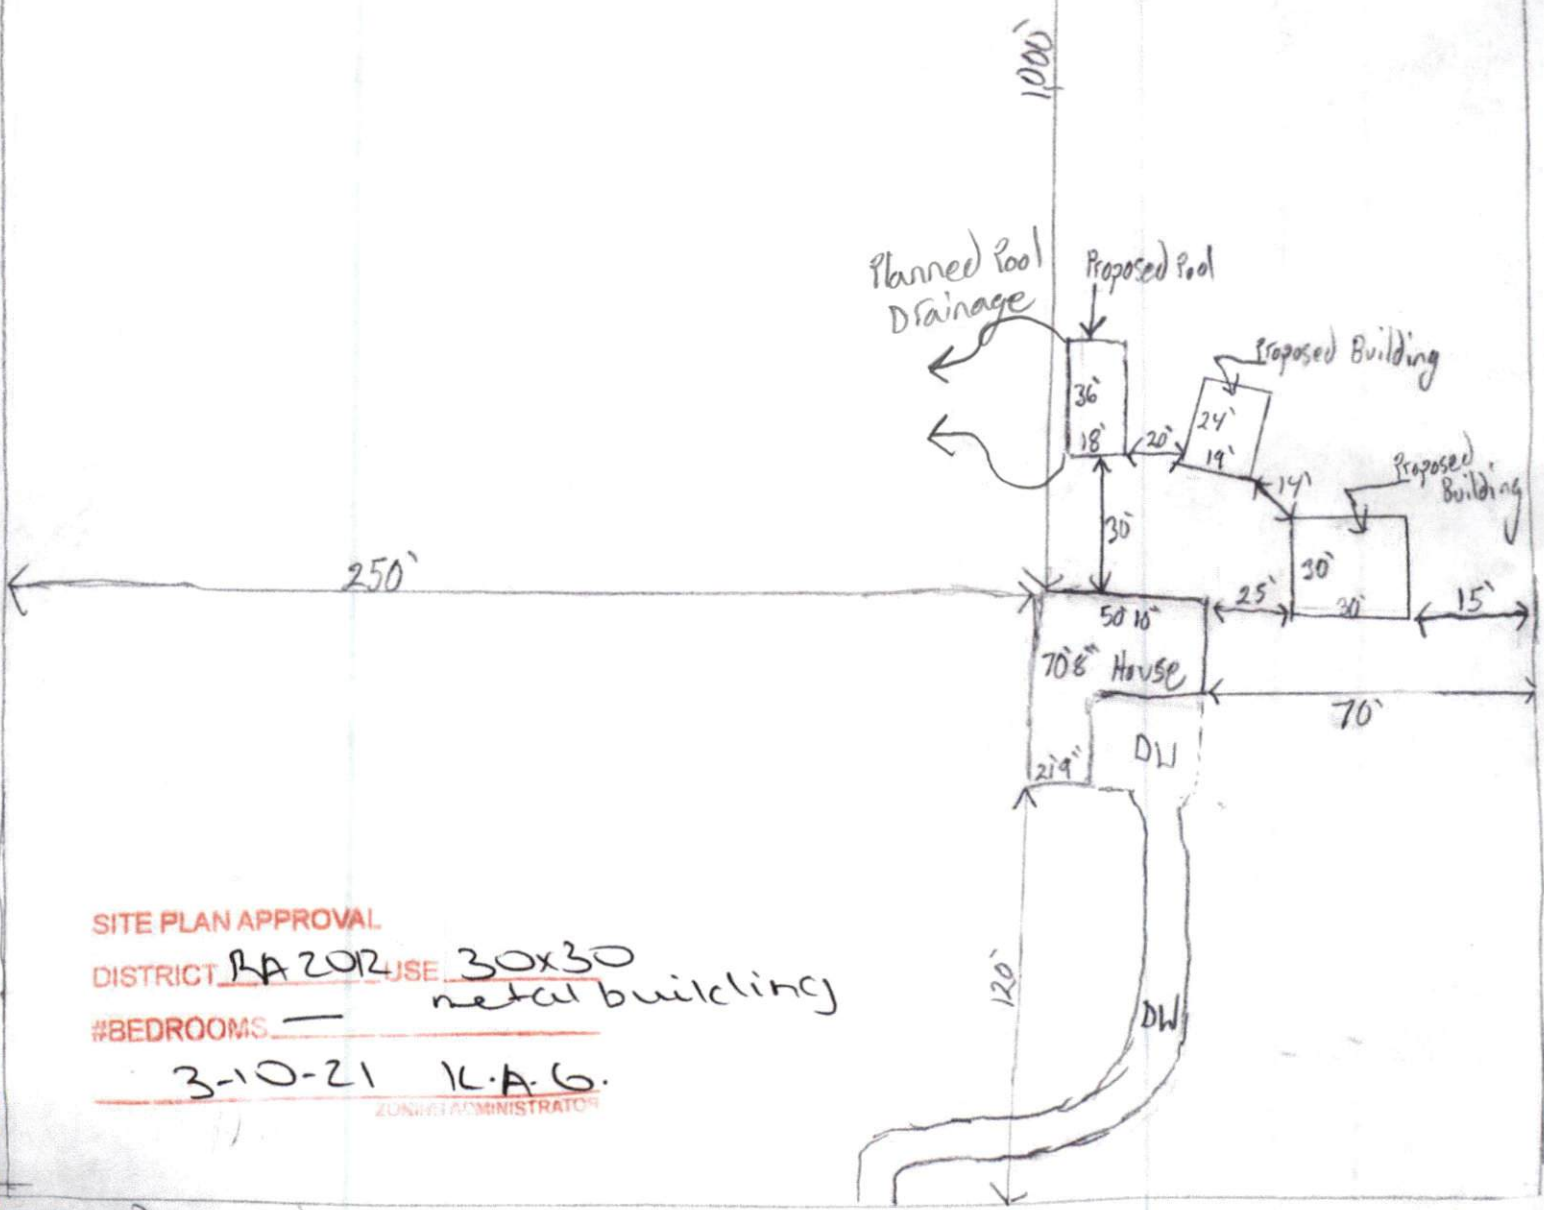 1000'
Planned Pool
Drainage
Proposed Pool
Proposed Building
36'
18'
20'
24'
19'
14'
Proposed
Building
30'
30'
30'
250'
25'
15'
50'10"
70'8" House
70'
DW
21'9"
120'
DW
SITE PLAN APPROVAL
DISTRICT RA20R USE 30x30
metal building
#BEDROOMS —
3-10-21 K.A.G.
ZONING ADMINISTRATOR